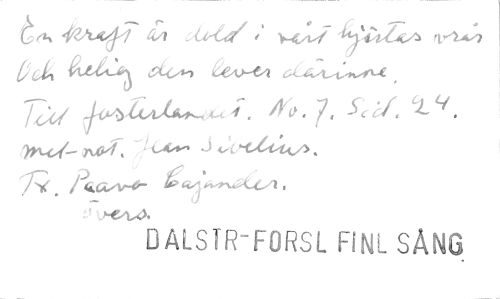 En kraft är dold i vårt hjärtas vrår
Och helig den lever därinne.
Till fosterlandet. No. 7. Sid. 24.
met-not. Jean Sibelius.
Tx. Paavo Cajander.
övers.
DALSTR-FORSL FINL SÅNG